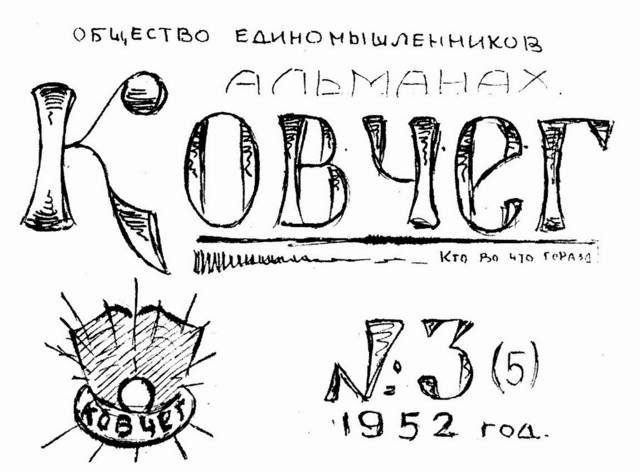 ОБЩЕСТВО ЕДИНОМЫШЛЕННИКОВ
АЛЬМАНАХ.
Ковчег
Кто во что горазд
№: 3 (5)
КОВЧЕГ
1952 год.